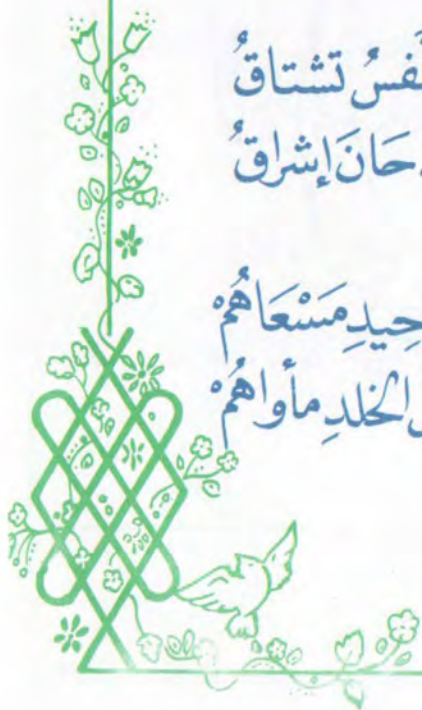 نفسُ تشتاقُ
حَانَ إشراقُ
حيدِ مَسْعَاهُمْ
الخلدِ مأواهُمْ